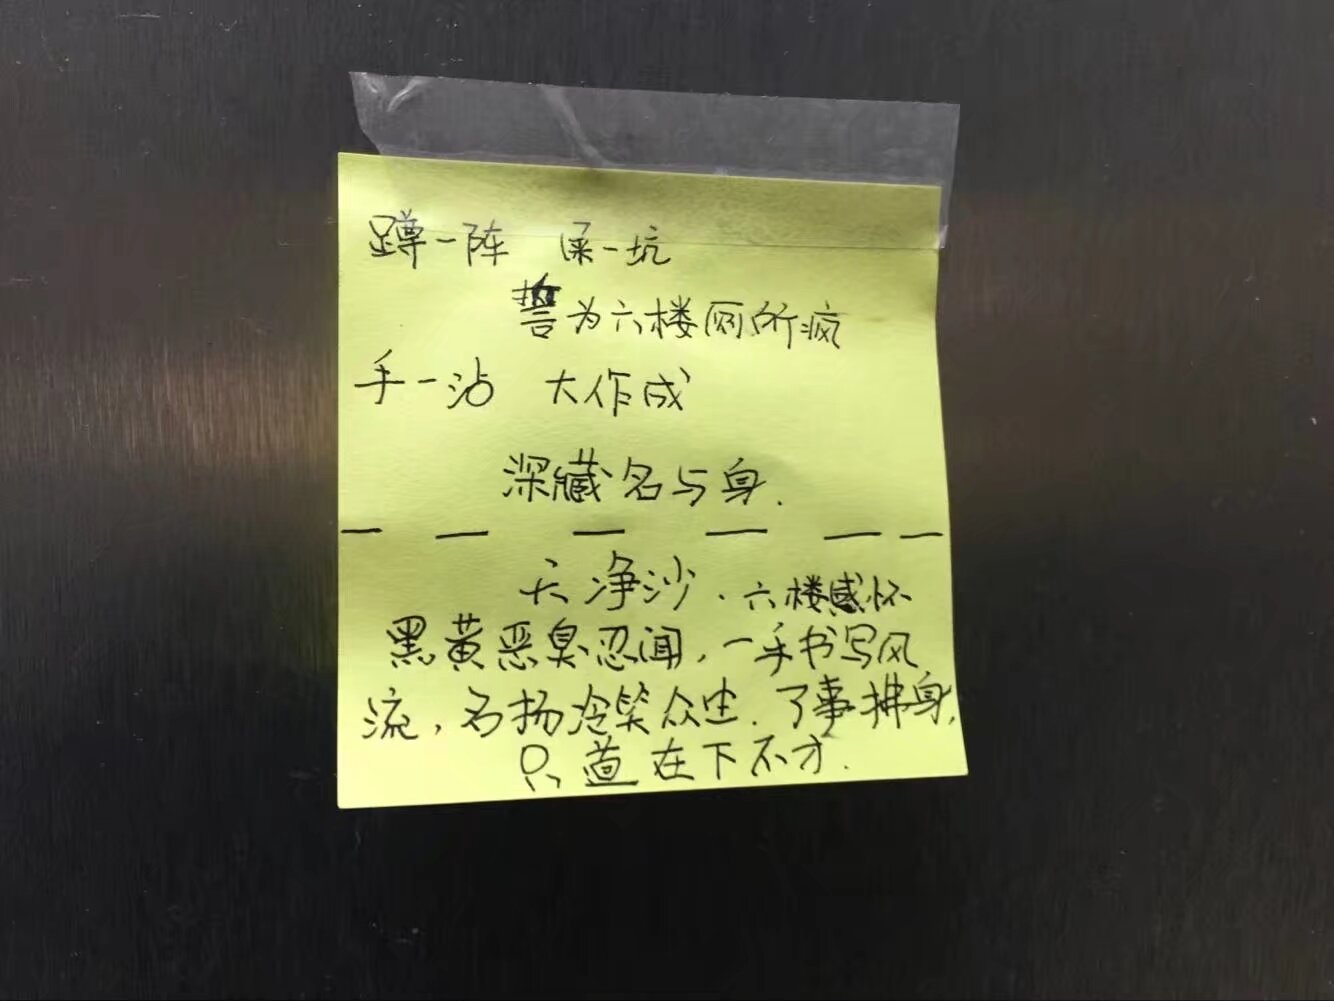 蹲一阵 屎一坑
誓为六楼厕所疯
手一沾 大作成
深藏名与身.
天净沙·六楼感怀
黑黄恶臭忍闻,一手书写风
流,名扬冷笑众生.了事拂身,
只道在下不才.